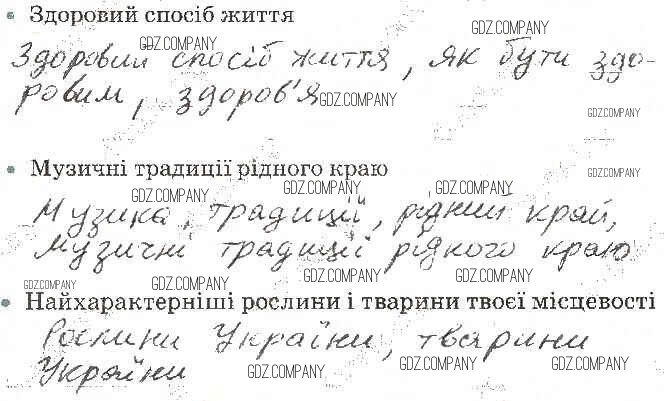 • Здоровий спосіб життя
GDZ.COMPANY GDZ.COMPANY
Здоровий спосіб життя, як бути здо-
ровим, здоров'я GDZ.COMPANY GDZ.COMPANY
• Музичні традиції рідного краю
GDZ.COMPANY GDZ.COMPANY GDZ.COMPANY GDZ.COMPANY
Музика, традиції, рідний край,
музичні традиції рідного краю
GDZ.COMPANY GDZ.COMPANY GDZ.COMPANY GDZ.COMPANY
• Найхарактерніші рослини і тварини твоєї місцевості
Рослини України, тварини
України GDZ.COMPANY GDZ.COMPANY GDZ.COMPANY